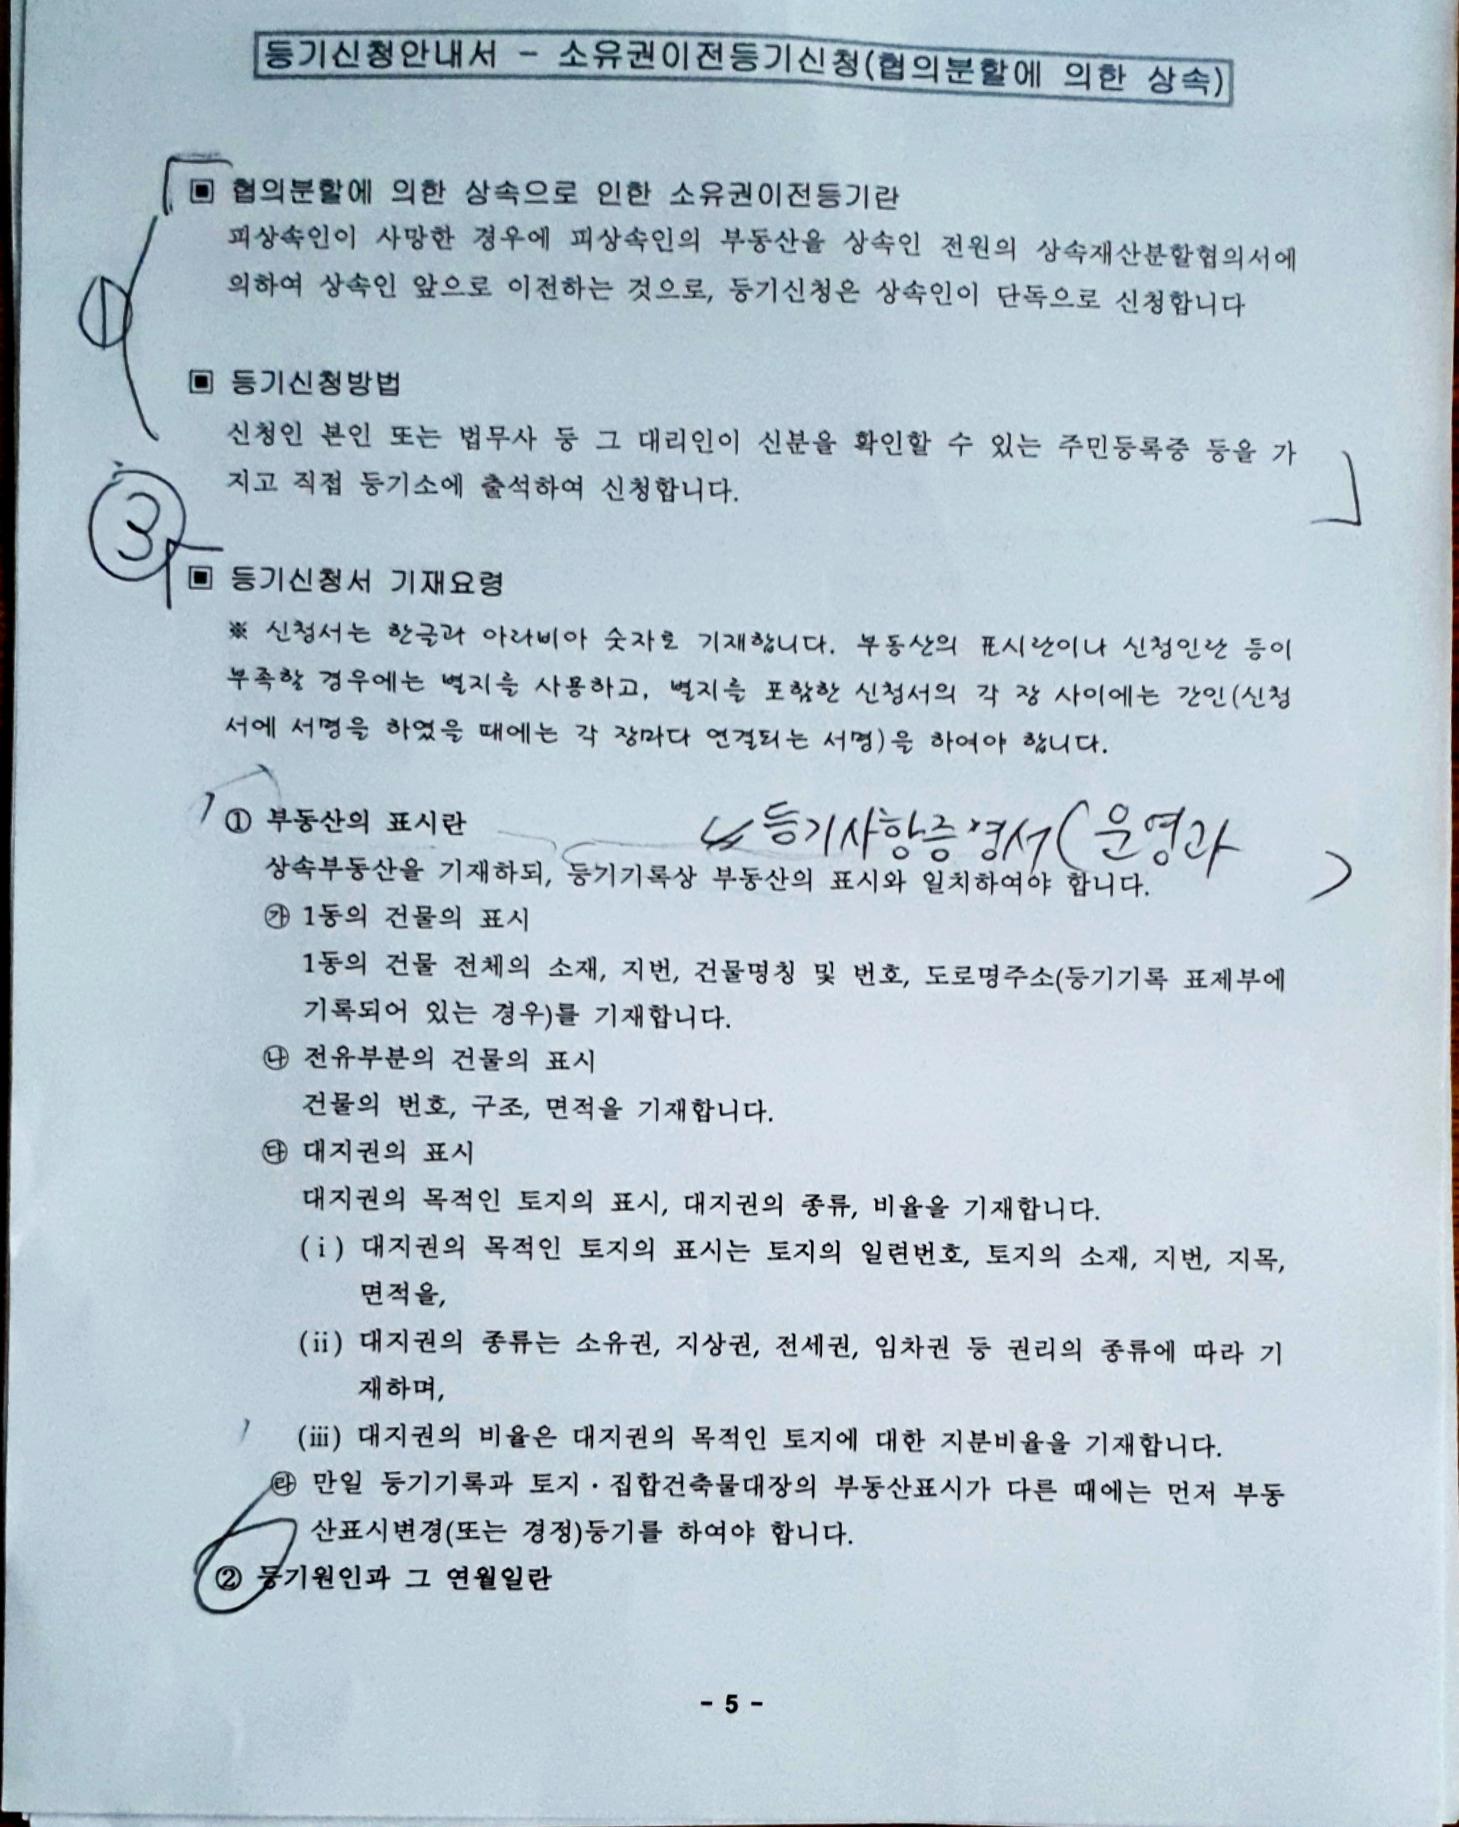 등기신청안내서 - 소유권이전등기신청(협의분할에 의한 상속)
▣ 협의분할에 의한 상속으로 인한 소유권이전등기란
피상속인이 사망한 경우에 피상속인의 부동산을 상속인 전원의 상속재산분할협의서에
의하여 상속인 앞으로 이전하는 것으로, 등기신청은 상속인이 단독으로 신청합니다
①
▣ 등기신청방법
신청인 본인 또는 법무사 등 그 대리인이 신분을 확인할 수 있는 주민등록증 등을 가
지고 직접 등기소에 출석하여 신청합니다.
③
▣ 등기신청서 기재요령
※ 신청서는 한글과 아라비아 숫자로 기재합니다. 부동산의 표시란이나 신청인란 등이
부족할 경우에는 별지를 사용하고, 별지를 포함한 신청서의 각 장 사이에는 간인(신청
서에 서명을 하였을 때에는 각 장마다 연결되는 서명)을 하여야 합니다.
① 부동산의 표시란
등기사항증명서(운영과
상속부동산을 기재하되, 등기기록상 부동산의 표시와 일치하여야 합니다.
㉮ 1동의 건물의 표시
1동의 건물 전체의 소재, 지번, 건물명칭 및 번호, 도로명주소(등기기록 표제부에
기록되어 있는 경우)를 기재합니다.
㉯ 전유부분의 건물의 표시
건물의 번호, 구조, 면적을 기재합니다.
㉰ 대지권의 표시
대지권의 목적인 토지의 표시, 대지권의 종류, 비율을 기재합니다.
(ⅰ) 대지권의 목적인 토지의 표시는 토지의 일련번호, 토지의 소재, 지번, 지목,
면적을,
(ⅱ) 대지권의 종류는 소유권, 지상권, 전세권, 임차권 등 권리의 종류에 따라 기
재하며,
(ⅲ) 대지권의 비율은 대지권의 목적인 토지에 대한 지분비율을 기재합니다.
㉱ 만일 등기기록과 토지·집합건축물대장의 부동산표시가 다른 때에는 먼저 부동
산표시변경(또는 경정)등기를 하여야 합니다.
② 등기원인과 그 연월일란
- 5 -